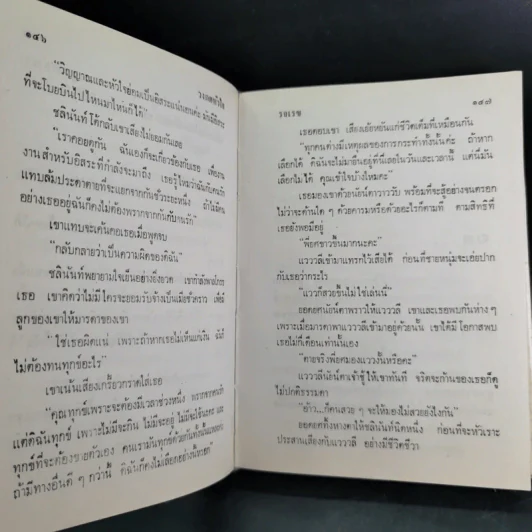 ๑๔๖
วงเดทหัวใจ
"วิญญาณและหัวใจย่อมเป็นอิสระแน่นอนค่ะ มันมีอิสระ
ที่จะโบยบินไปไหนมาไหนก็ได้"
ชลินันท์โต้กลับเขาเสียงไม่ยอมกันเลย
"เราคอยดูกัน ฉันเองก็จะเกี่ยวข้องกับเธอ เพื่องาน
งานสำหรับอิสระที่กำลังจะมาถึง เธอรู้ไหมว่าฉันกับคน
แทบล้มประดาตายที่จะแยกจากกันชั่วระยะหนึ่ง ถ้าไม่มีคน
อย่างเธออยู่ฉันก็คงไม่ต้องพรากจากกันกับอรเรก"
เขาแทบจะเค้นคอเธอเมื่อพูดจบ
"กลับกลายว่าเป็นความผิดของดิฉัน"
ชลินันท์พยายามใจเย็นอย่างยิ่งยวด เขากำลังพาลใส่
เธอ เขาคิดว่าไม่มีใครจะยอมรับจ้างเป็นเมียชั่วคราว เพื่อมี
ลูกของเขาให้มารดาของเขา
"ใช่เธอผิดแน่ เพราะถ้าหากเธอไม่เห็นแก่เงิน ฉันก็
ไม่ต้องทนทุกข์อะไร"
เขาเน้นเสียงเกรี้ยวกราดใส่เธอ
"คุณทุกข์เพราะจะต้องมีเวลาช่วงหนึ่ง พรากจากคนรัก
แต่ดิฉันทุกข์ เพราะไม่มีจะกิน ไม่มีจะอยู่ ไม่มีจะใช้และ
ทุกข์ที่จะต้องขายตัวเอง คนเรามันทุกข์ด้วยกันทั้งนั้นแหละ
ถ้ามีทางอื่นดี ๆ กว่านี้ ดิฉันก็คงไม่เลือกอย่างนี้หรอก"
รอเรช
๑๔๗
เธอตอบเขา เสียงเย้ยหยันแก่ชีวิตเต็มที่เหมือนกัน
"ทุกคนต่างมีเหตุผลของการกระทำทั้งนั้นค่ะ ถ้าหาก
เลือกได้ ดิฉันจะไม่มายืนอยู่ที่นี่เลยในวันและเวลานี้ แต่นี่มัน
เลือกไม่ได้ คุณเข้าใจบ้างไหมคะ"
เธอมองเขาด้วยนัยน์ตาวาววับ พร้อมที่จะสู้อย่างจนตรอก
ไม่ว่าจะด้านใด ๆ ด้วยคารมหรือด้วยอะไรก็ตามที่ ตามสิทธิที่
เธอยังพอมีอยู่
"พี่ยศขาวขึ้นมากนะคะ"
แวววลีเข้ามาแทรกไว้เสียได้ ก่อนที่ชายหนุ่มจะเอ่ยปาก
กับเธอว่ากระไร
"แววก็สวยขึ้นไม่ใช่เล่นนี่"
ยอดยศนัยน์ตาพราวให้แวววลี เขาและเธอพบกันห่าง ๆ
เพราะเมื่อมารดาพาแวววลีเข้ามาอยู่ด้วยนั้น เขาได้มีโอกาสพบ
เธอไม่กี่เดือนเท่านั้นเอง
"ตายจริงพี่ยศมองแวววงั้นหรือคะ"
แวววลีนัยน์ตาเจ้าชู้ให้เขาทันที จริตจะก้านของเธอก็ดู
ไม่ปกติธรรมดา
"อ้าว...ก็คนสวย ๆ จะให้มองไม่สวยยังไงกัน"
ยอดยศทิ้งหางตาให้ชลินันท์นิดหนึ่ง ก่อนที่จะหัวเราะ
ประสานเสียงกับแวววลี อย่างมีชีวิตชีวา